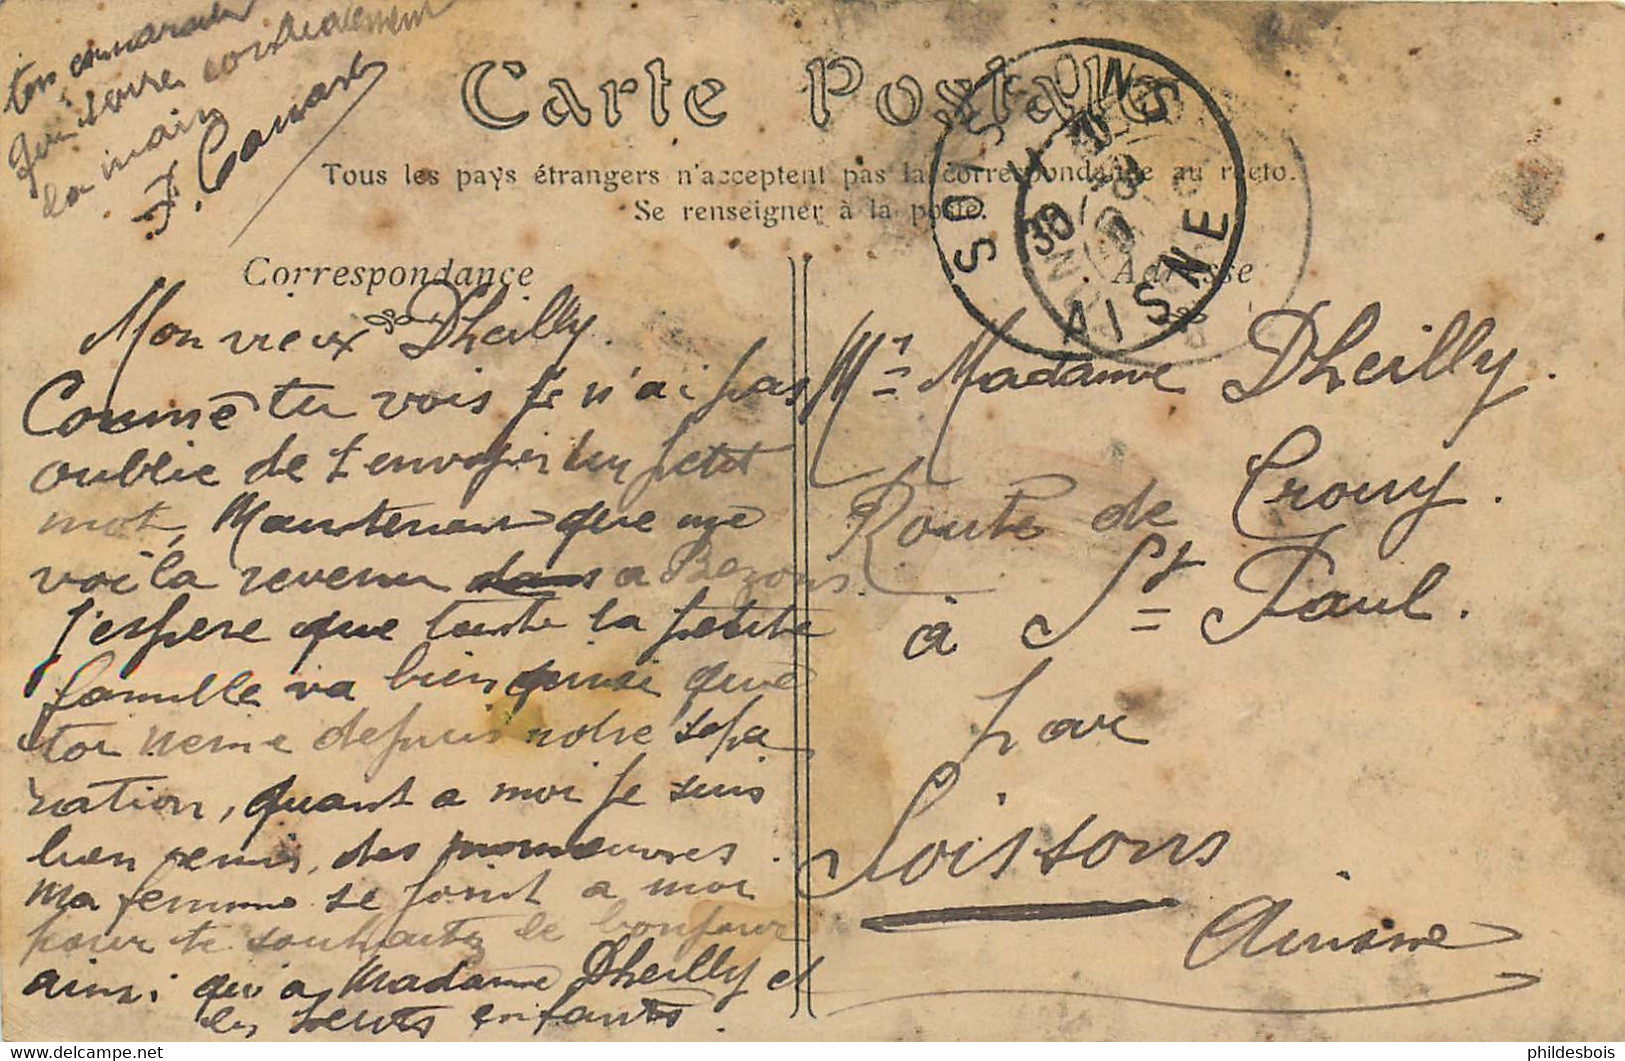 Carte Postale
Tous les pays étrangers n'acceptent pas la correspondance au recto.
Se renseigner à la poste.
Correspondance
Adresse
SOISSONS
AISNE
30
Mon vieux Dheilly.
Comme tu vois je n'ai pas
oublie de t envoyer un petit
mot, Maintenant que me
voila revenu dans a Bezons.
J'espere que toute la petite
famille va bien ainsi que
toi meme depuis notre sepa
ration, quant a moi je suis
bien remis, des manoeuvres.
Ma femme se joint a moi
pour te souhaiter le bonjour
ainsi qu'a Madame Dheilly et
les petits enfants.
ton camarade
qui serre cordialement
la main
Mr Madame Dheilly.
Route de Crouy.
à St Paul.
par
Soissons
Ainsne
phildesbois